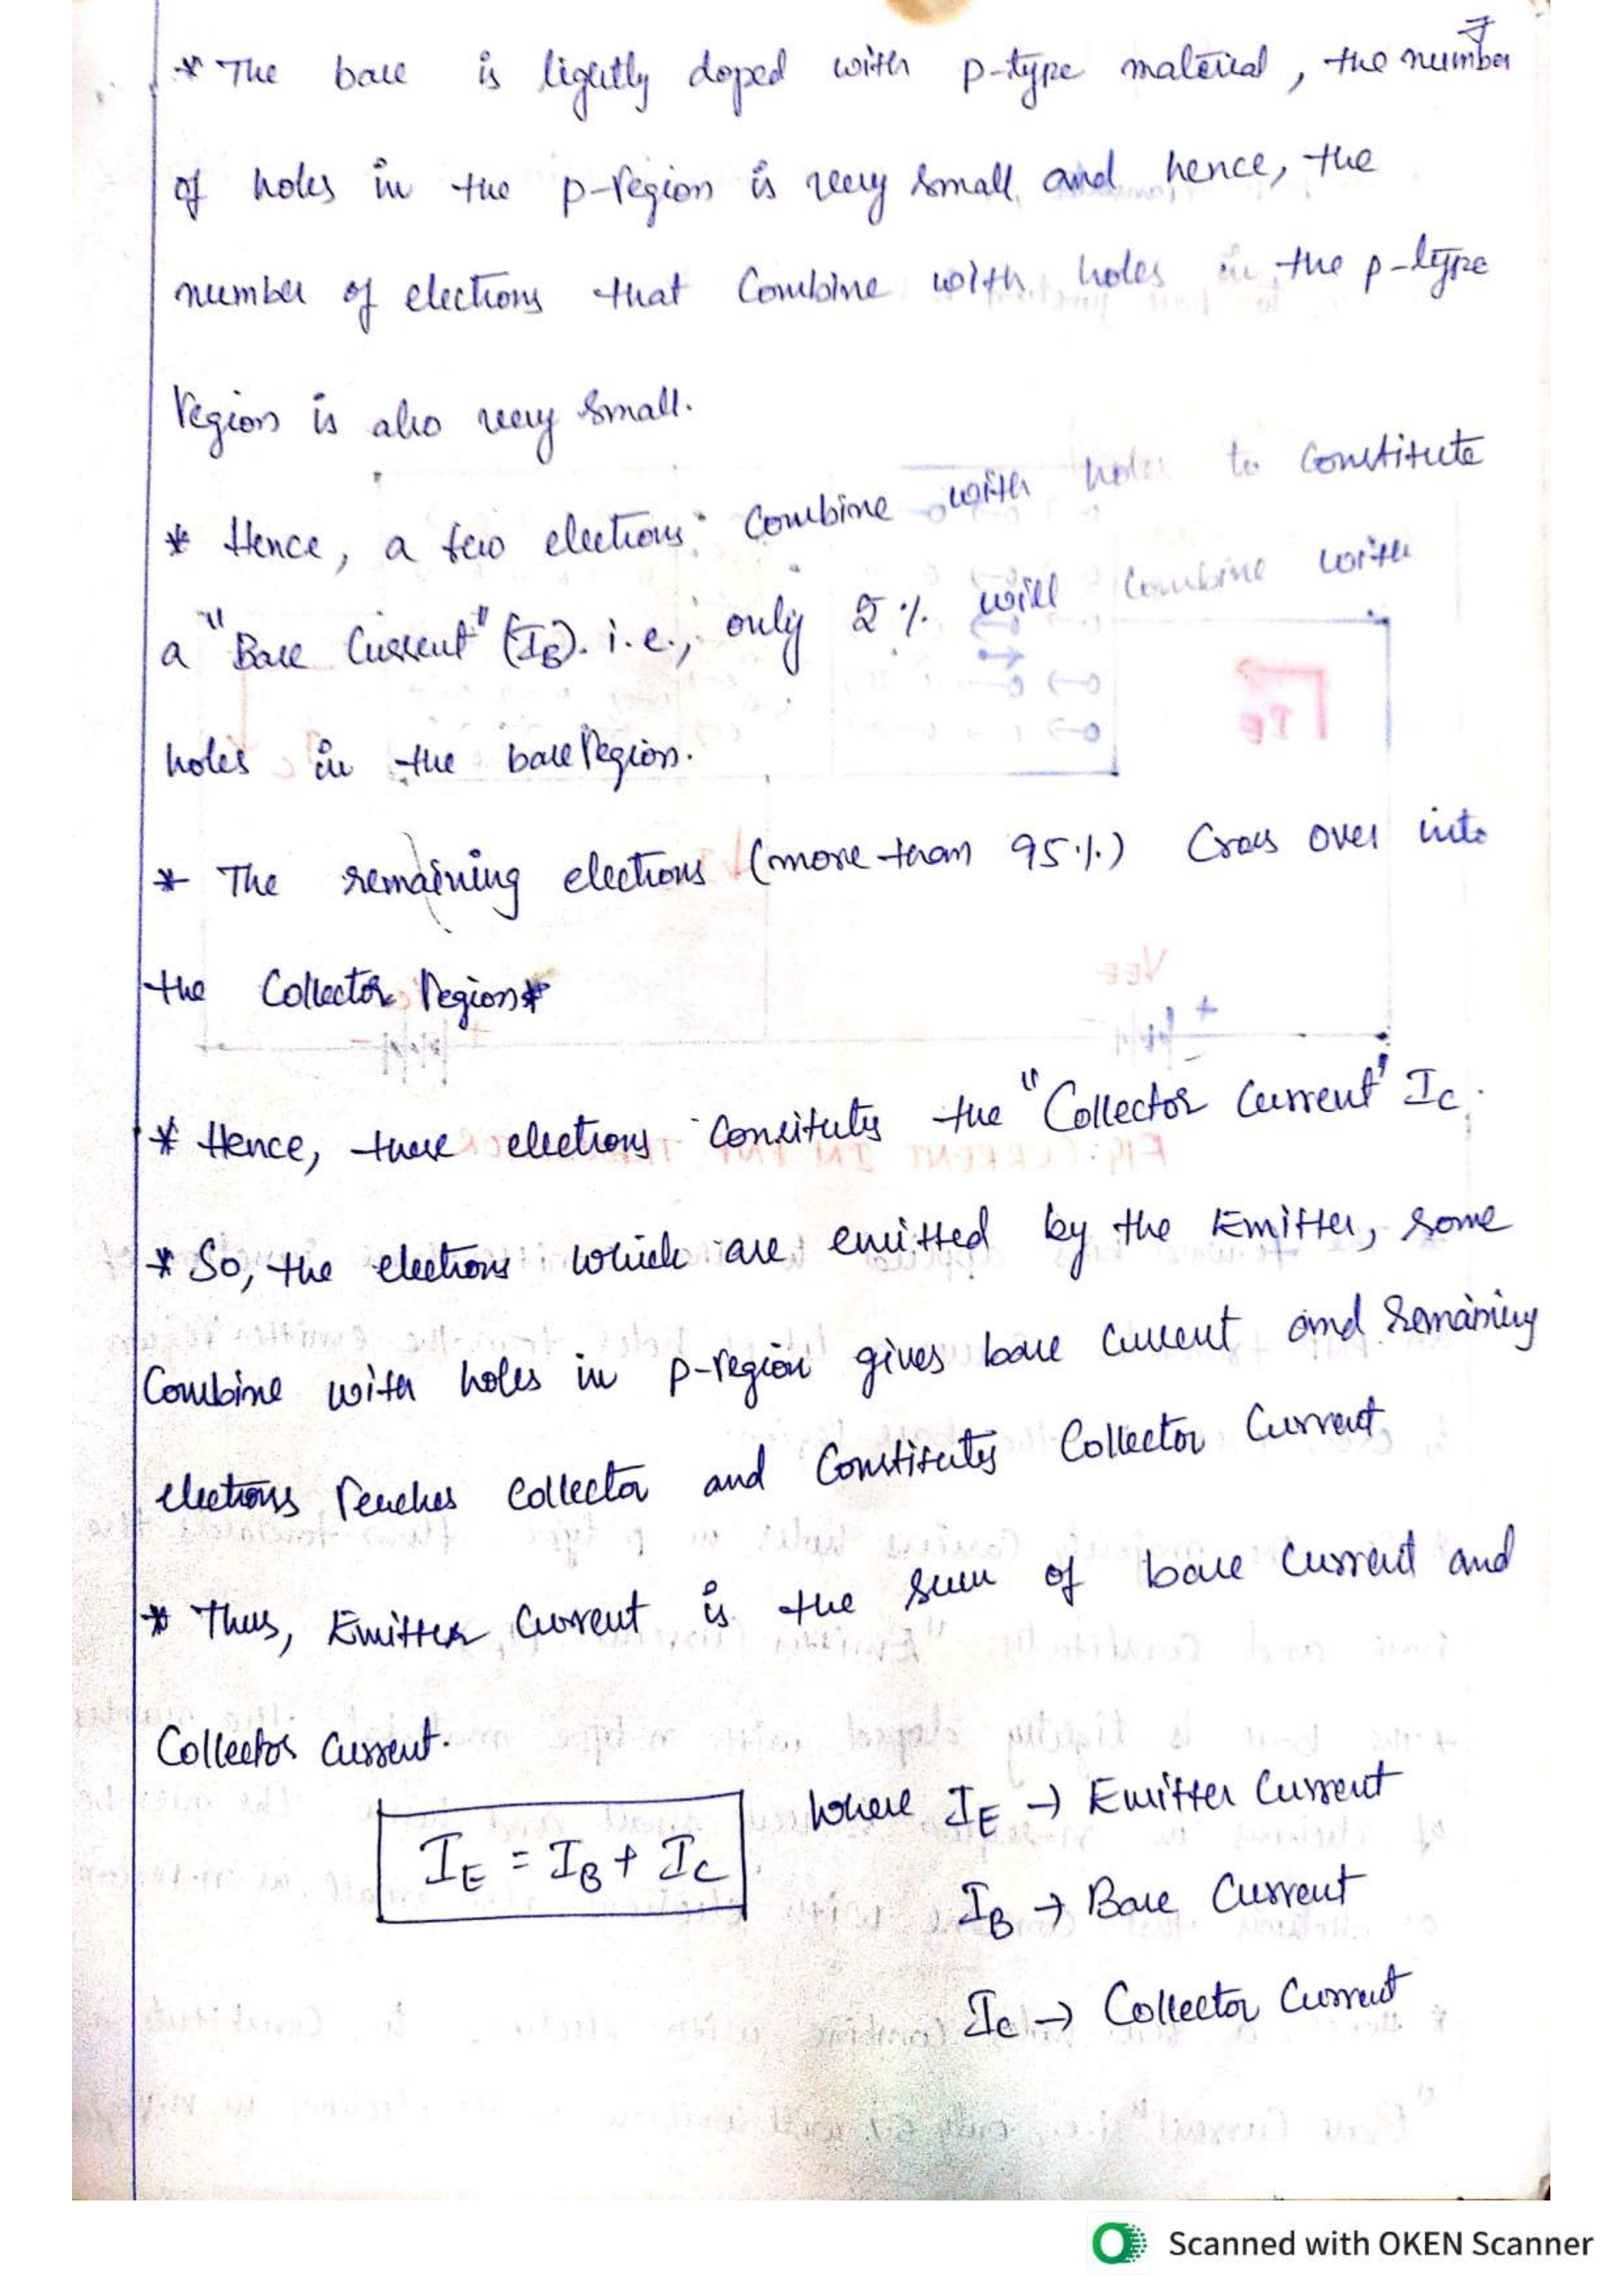 7
* The base is lightly doped with p-type material, the number
of holes in the p-region is very small and hence, the
number of electrons that Combine with holes in the p-type
region is also very small.
* Hence, a few electrons combine with holes to constitute
a "Base Current" (IB). i.e., only 2% will combine with
holes in the base region.
* The remaining electrons (more than 95%) Cross over into
the Collector region*
* Hence, these electrons Consitutes the "Collector Current" IC.
* So, the electrons which are emitted by the Emitter, some
Combine with holes in p-region gives base Current and remaining
electrons reaches collector and Constitutes Collector Current
* Thus, Emitter Current is the sum of base Current and
Collector Current.
IE = IB + IC where IE → Emitter Current
IB → Base Current
IC → Collector Current
Scanned with OKEN Scanner